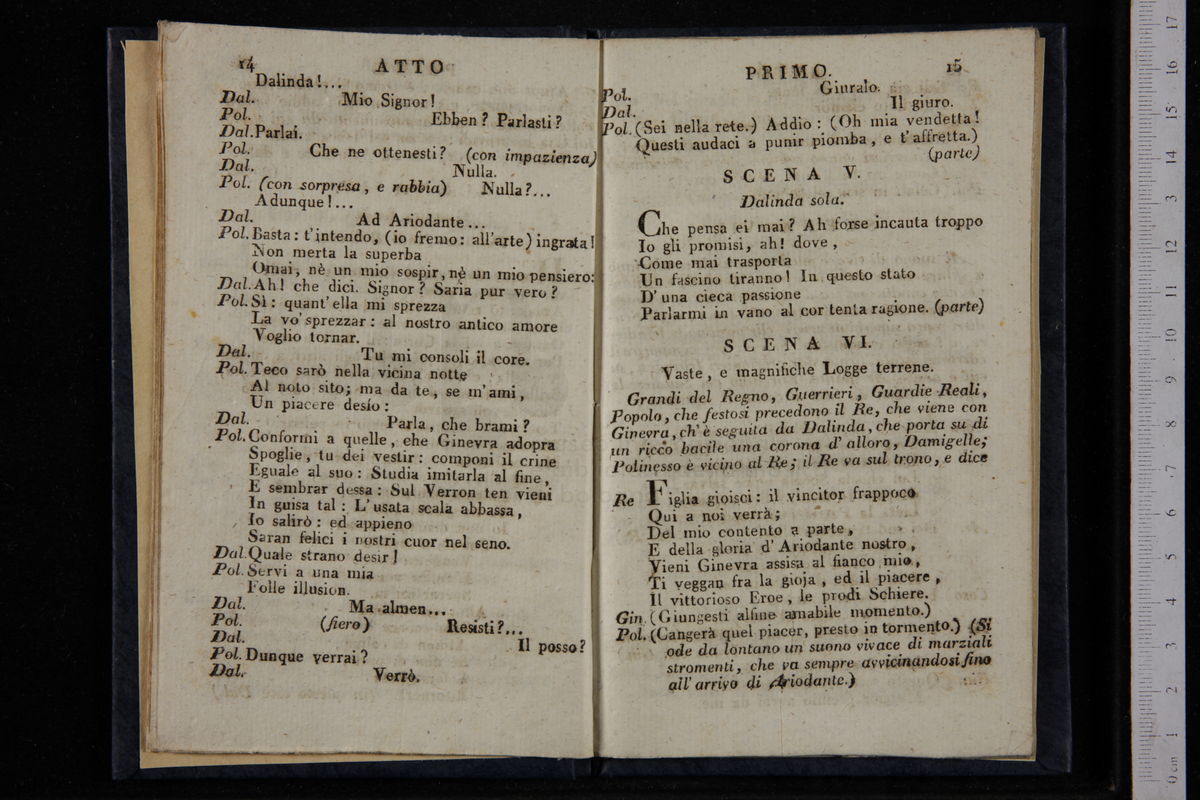 14 ATTO
Dalinda!...
Dal. Mio Signor!
Pol. Ebben? Parlasti?
Dal. Parlai.
Pol. Che ne ottenesti? (con impazienza)
Dal. Nulla.
Pol. (con sorpresa, e rabbia) Nulla?...
Adunque!...
Dal. Ad Ariodante...
Pol. Basta: t'intendo, (io fremo: all'arte) ingrata!
Non merta la superba
Omai, nè un mio sospir, nè un mio pensiero:
Dal. Ah! che dici. Signor? Saria pur vero?
Pol. Sì: quant'ella mi sprezza
La vo' sprezzar: al nostro antico amore
Voglio tornar.
Dal. Tu mi consoli il core.
Pol. Teco sarò nella vicina notte
Al noto sito; ma da te, se m'ami,
Un piacere desio:
Dal. Parla, che brami?
Pol. Conformi a quelle, che Ginevra adopra
Spoglie, tu dei vestir: componi il crine
Eguale al suo: Studia imitarla al fine,
E sembrar dessa: Sul Verron ten vieni
In guisa tal: L'usata scala abbassa,
Io salirò: ed appieno
Saran felici i nostri cuor nel seno.
Dal. Quale strano desir!
Pol. Servi a una mia
Folle illusion.
Dal. Ma almen...
Pol. (fiero) Resisti?...
Dal. Il posso?
Pol. Dunque verrai?
Dal. Verrò.
PRIMO. 15
Pol. Giuralo.
Dal. Il giuro.
Pol. (Sei nella rete.) Addio: (Oh mia vendetta!
Questi audaci a punir piomba, e t'affretta.)
(parte)
SCENA V.
Dalinda sola.
Che pensa ei mai? Ah forse incauta troppo
Io gli promisi, ah! dove,
Come mai trasporta
Un fascino tiranno! In questo stato
D'una cieca passione
Parlarmi in vano al cor tenta ragione. (parte)
SCENA VI.
Vaste, e magnifiche Logge terrene.
Grandi del Regno, Guerrieri, Guardie Reali,
Popolo, che festosi precedono il Re, che viene con
Ginevra, ch'è seguita da Dalinda, che porta su di
un ricco bacile una corona d'alloro, Damigelle;
Polinesso è vicino al Re; il Re va sul trono, e dice
Re Figlia gioisci: il vincitor frappoco
Qui a noi verrà;
Del mio contento a parte,
E della gloria d'Ariodante nostro,
Vieni Ginevra assisa al fianco mio,
Ti veggan fra la gioja, ed il piacere,
Il vittorioso Eroe, le prodi Schiere.
Gin. (Giungesti alfine amabile momento.)
Pol. (Cangerà quel piacer, presto in tormento.) (Si
ode da lontano un suono vivace di marziali
stromenti, che va sempre avvicinandosi fino
all'arrivo di Ariodante.)
17
16
15
14
13
12
11
10
9
8
7
6
5
4
3
2
1
0 cm